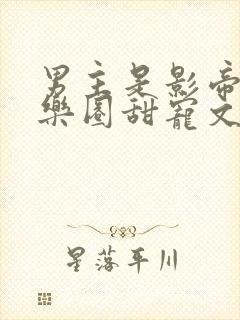 男主是影帝
樂園甜寵文
星落平川